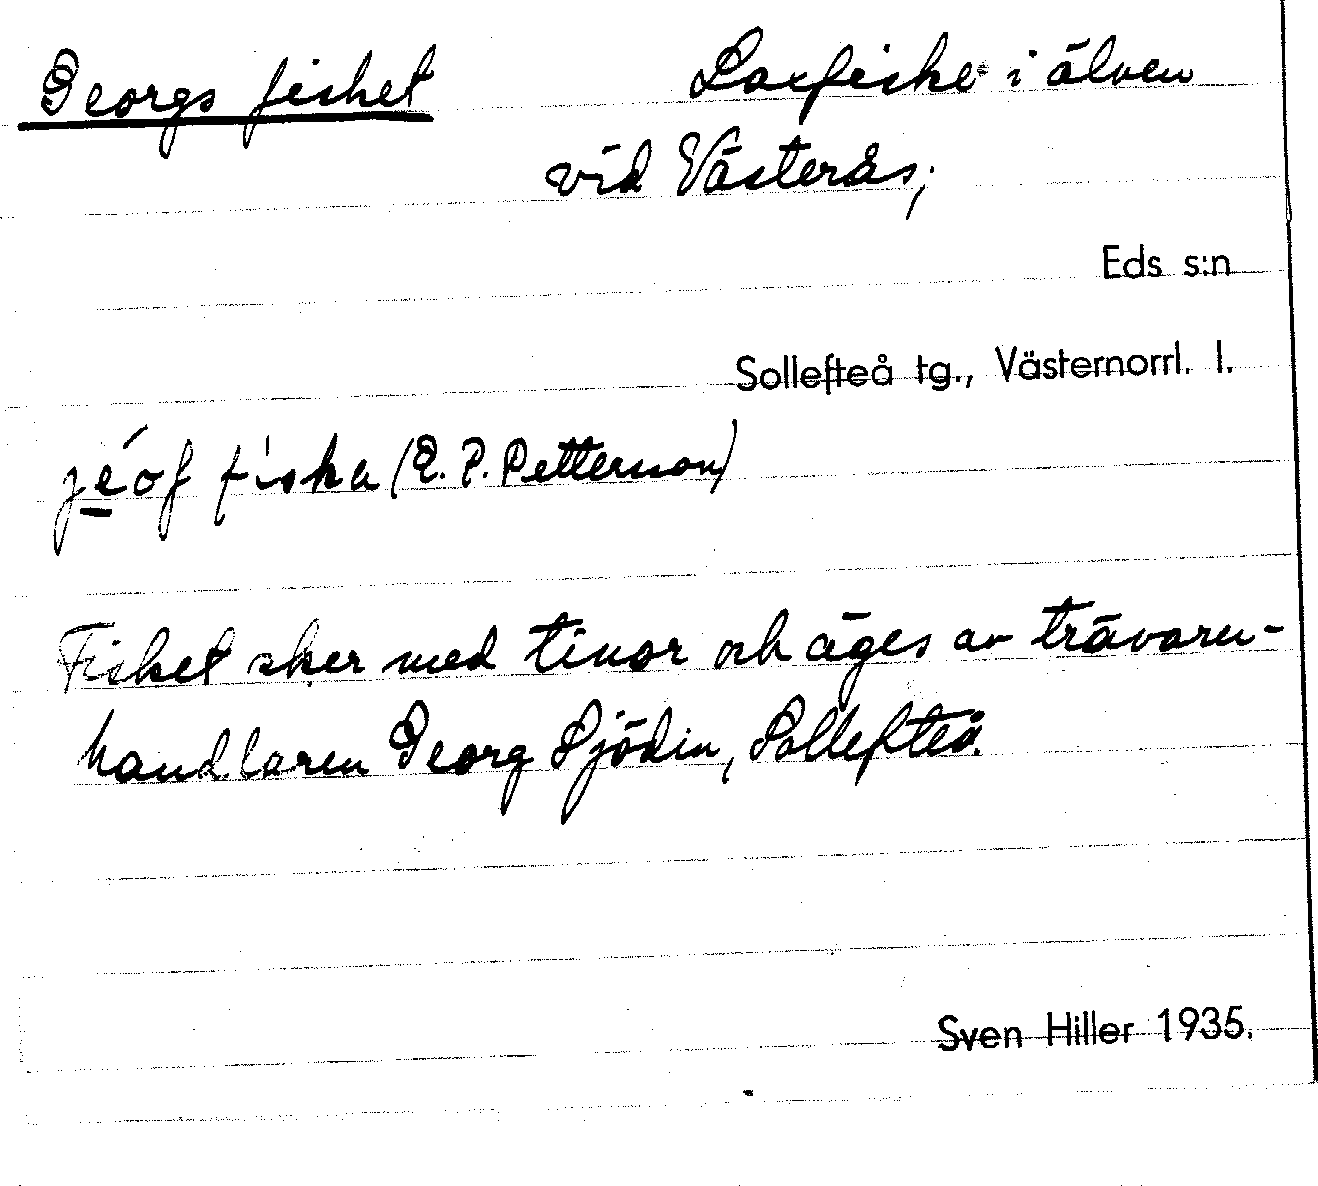 Georgs fisket Laxfiske i älven
vid Västerås;
Eds s:n
Sollefteå tg., Västernorrl. l.
jéoʃ fiska (E. P. Petterson)
Fisket sker med tinor och äges av trävaru-
handlaren Georg Sjödin, Sollefteå.
Sven Hiller 1935.